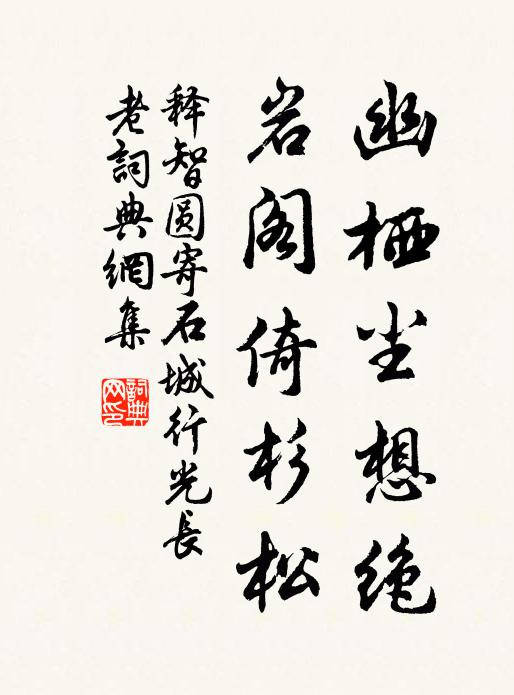 幽栖尘想绝
岩阁倚杉松
释智圆寄石城行光長
老詞典網集
詞典网印